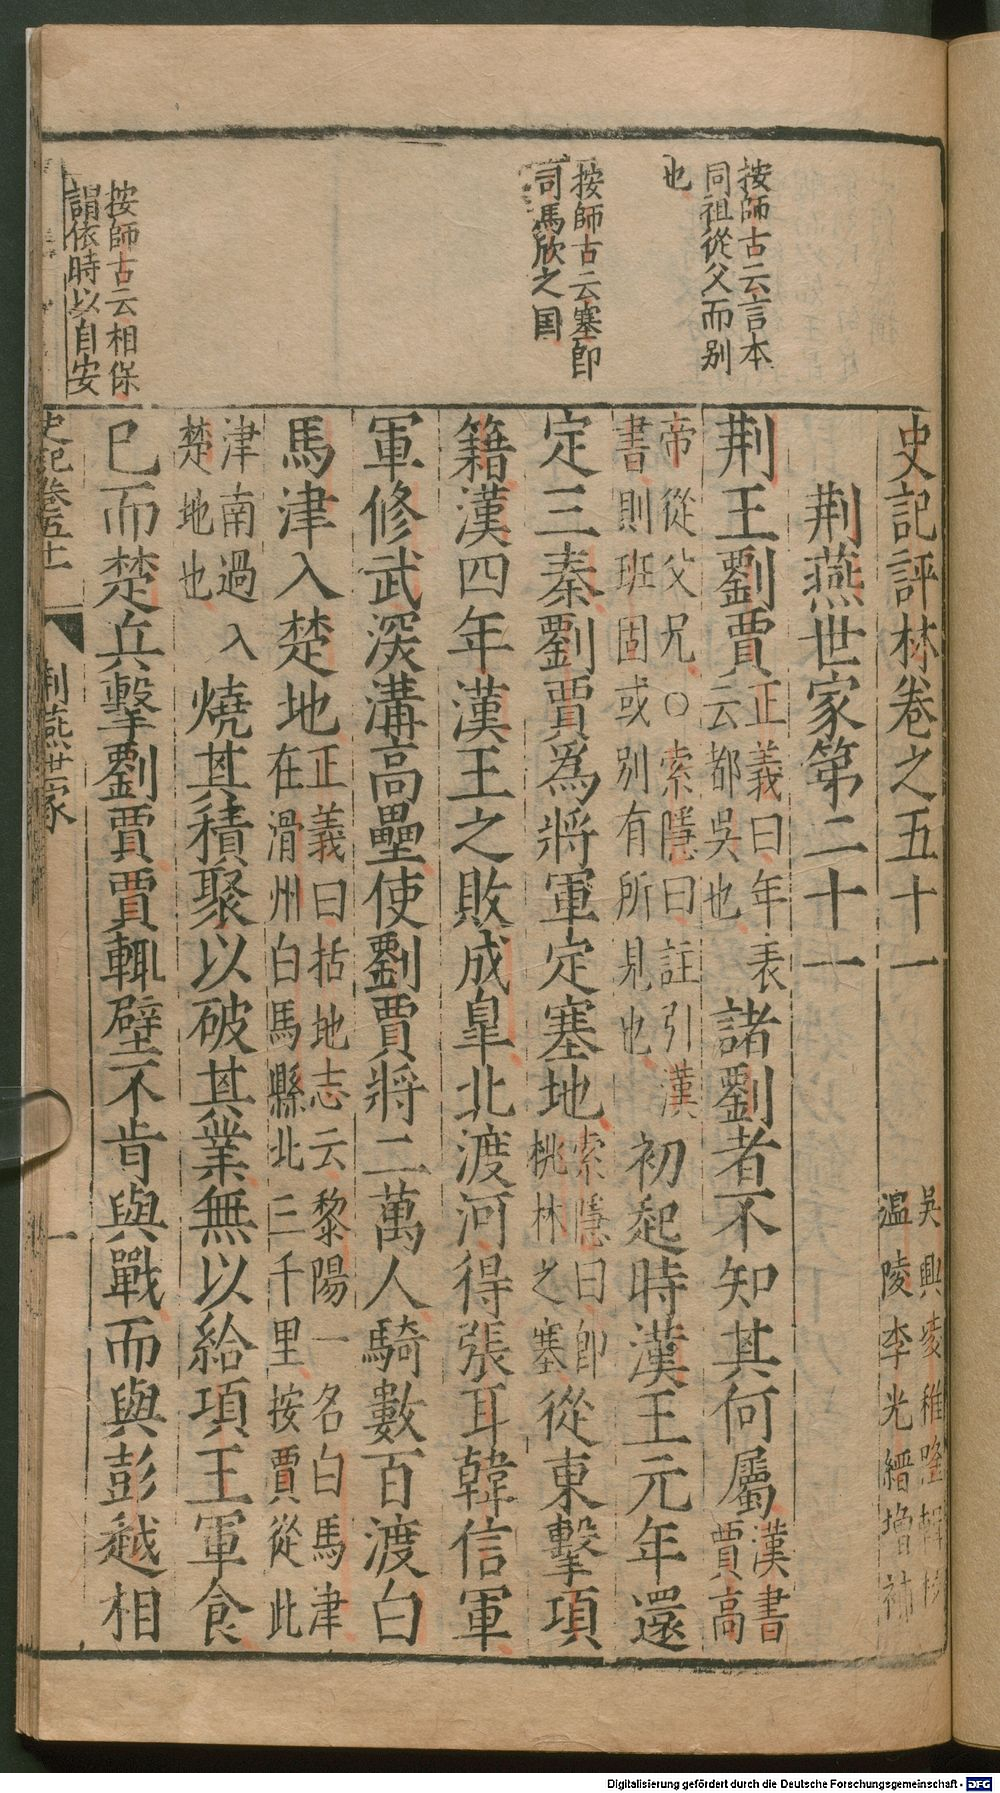 按師古云言本
同祖從父而别
也
按師古云塞即
司馬欣之国
按師古云相保
謂依時以自安
史記評林卷之五十一
吳興凌稚隆輯校
溫陵李光縉增補
荆燕世家第二十一
荆王劉賈
正義曰年表
云都吳也
諸劉者不知其何屬
漢書
賈高
帝從父兄○索隱曰註引漢
書則班固或别有所見也
初起時漢王元年還
定三秦劉賈爲將軍定塞地
索隱曰即
桃林之塞
從東擊項
籍漢四年漢王之敗成皐北渡河得張耳韓信軍
軍修武深溝高壘使劉賈將二萬人騎數百渡白
馬津入楚地
正義曰括地志云黎陽一名白馬津
在滑州白馬縣北三千里按賈從此
津南過入
楚地也
燒其積聚以破其業無以給項王軍食
已而楚兵擊劉賈賈輙壁不肯與戰而與彭越相
史記卷五十一
荆燕世家
一
Digitalisierung gefördert durch die Deutsche Forschungsgemeinschaft - DFG